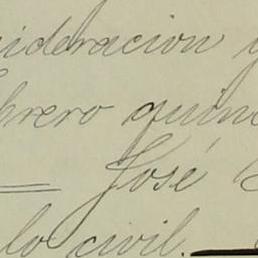 sideracion y
brero quin
José
lo civil.